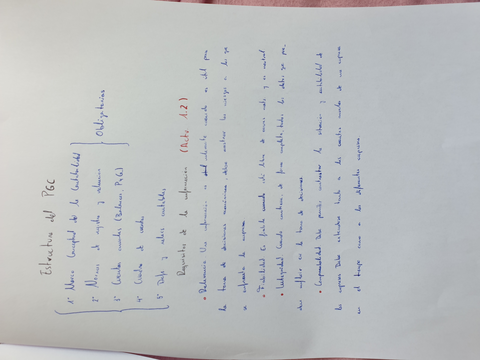 Estructura del PGC
1º Marco Conceptual de la Contabilidad
2º Normas de registro y valoración
3º Cuentas anuales (Balance, PyG)
Obligatorias
4º Cuadro de cuentas
5º Def. y relac. contables
Requisitos de la información (Acto 1.2)
• Relevancia Una información es relevante cuando es útil para
la toma de decisiones económicas. debe mostrar los riesgos a los que
se enfrenta la empresa
• Fiabilidad Es fiable cuando está libre de errores y es neutral
• Integridad Cuando contiene, de forma completa, todos los datos que pueden
influir en la toma de decisiones
• Comparabilidad Debe permitir contrastar la situación y rentabilidad de
las empresas Debe extenderse tanto a las cuentas anuales de una empresa
en el tiempo como a las diferentes empresas